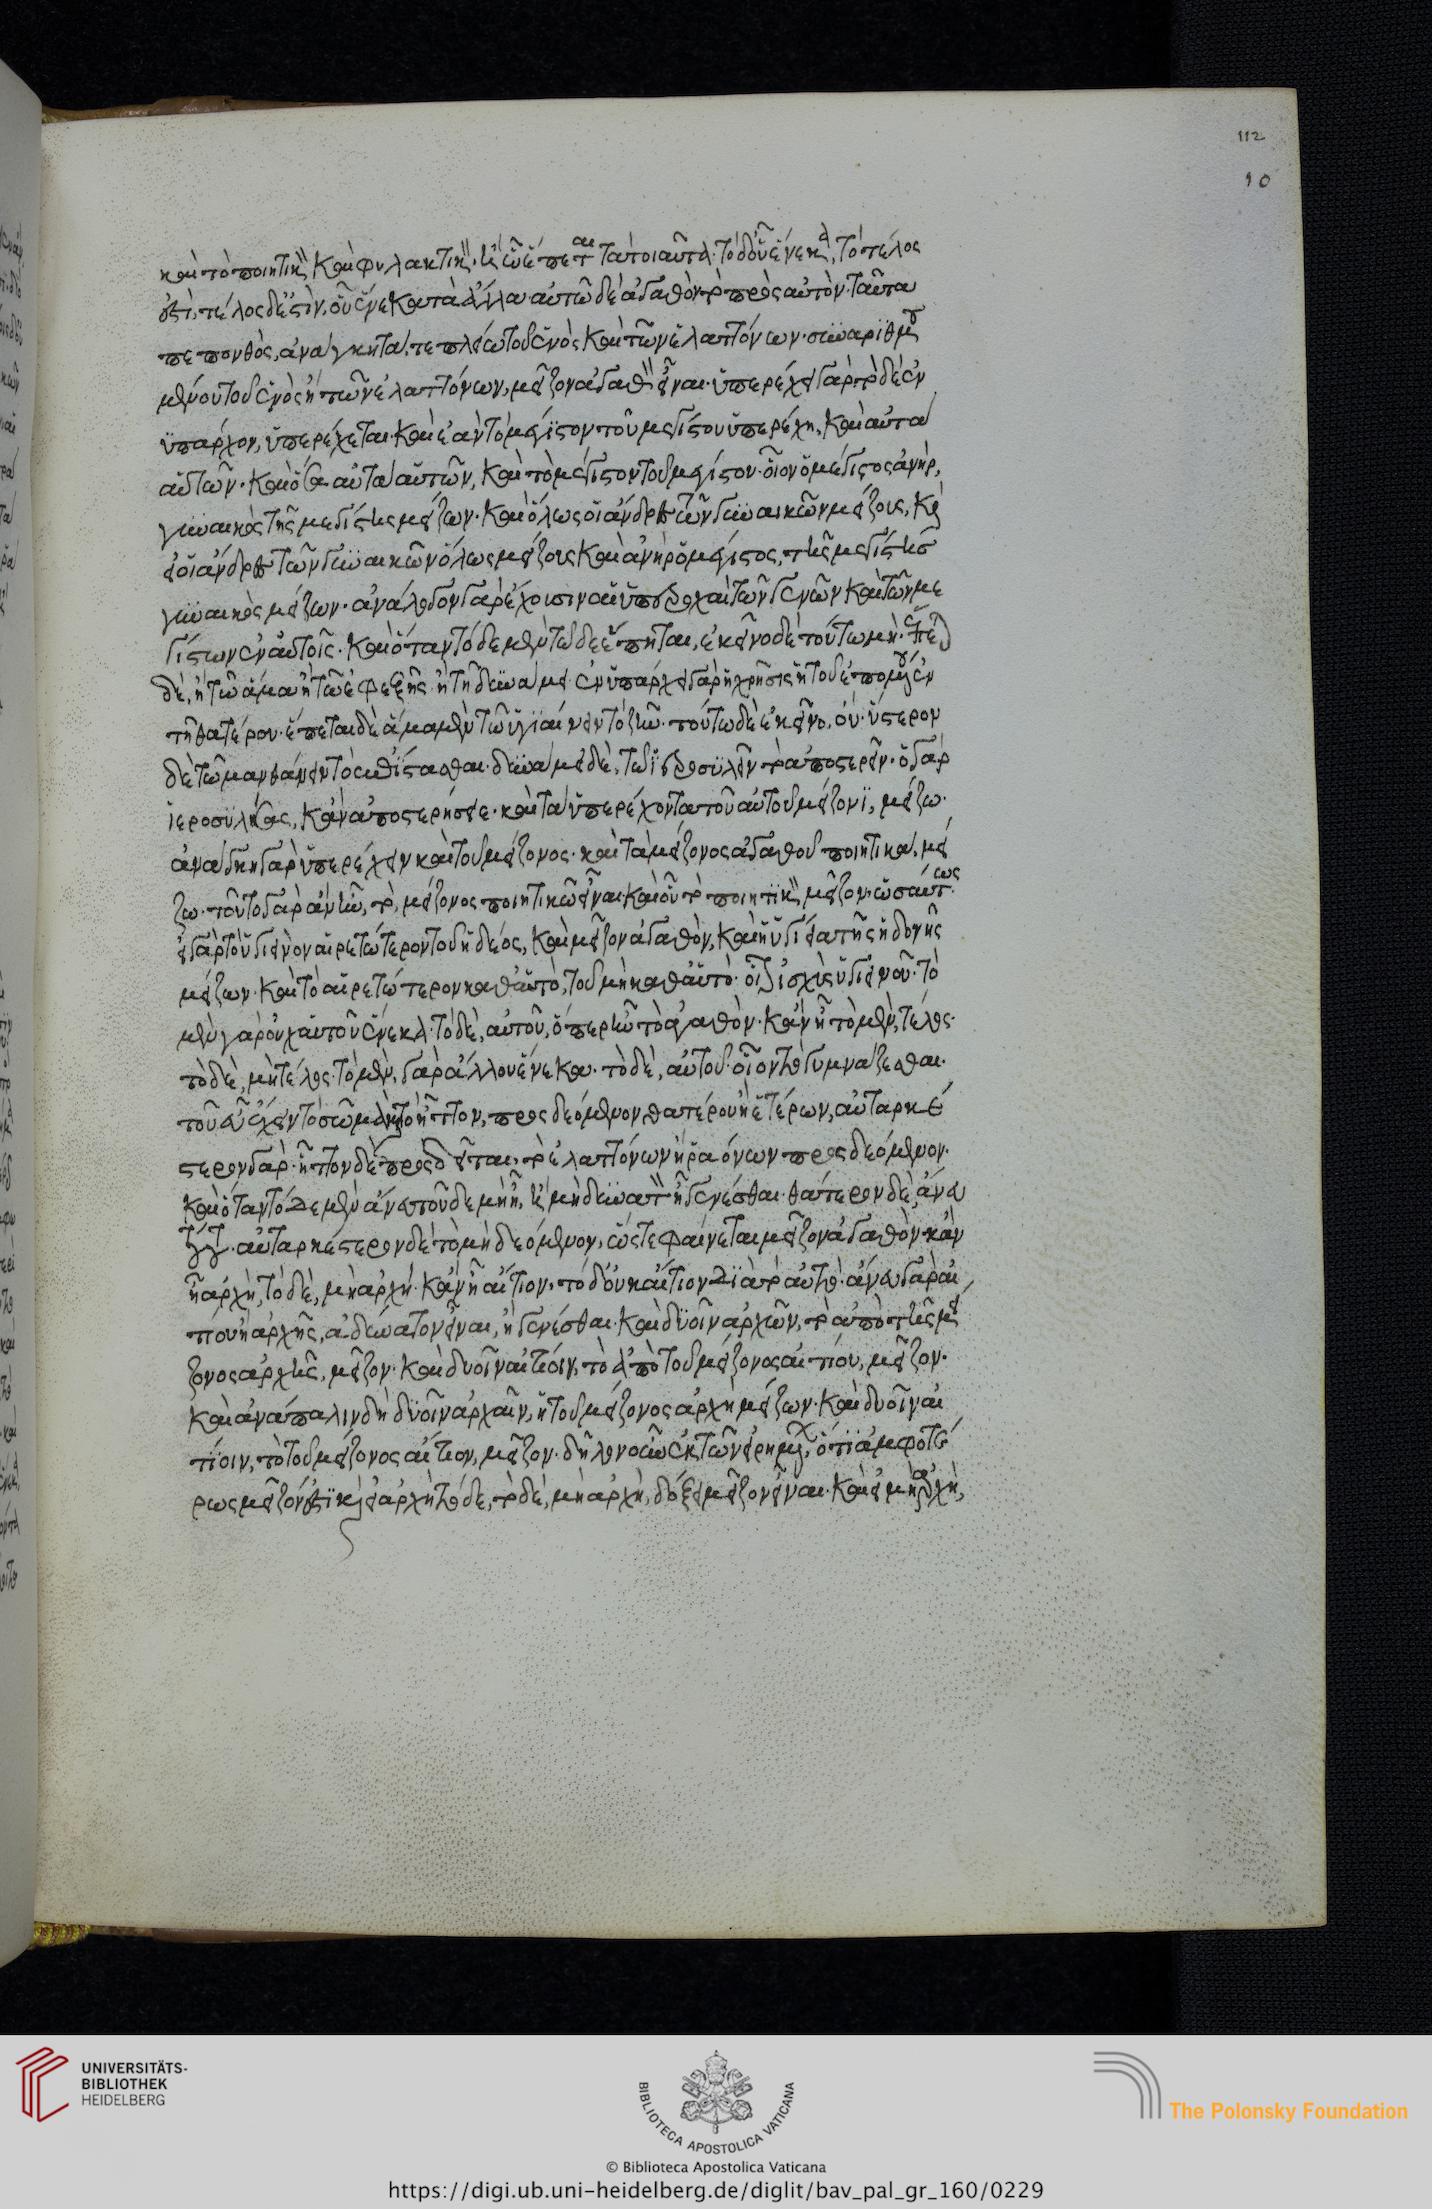 καὶ τὸ ποιητικὸν καὶ φυλακτικὸν· καὶ ᾧ ἕπεται τὰ τοιαῦτα· τὸ δ' οὗ ἕνεκα, τὸ τέλος
ἐστὶ, τέλος δέ ἐστὶν, οὗ ἕνεκα τὰ ἄλλα· αὐτῷ δὲ ἀγαθὸν τὸ πρὸς αὐτὸν ταῦτα
πεπονθὸς, ἀνάγκη τά, τε πλείω τοῦ ἑνὸς καὶ τῶν ἐλαττόνων· συναριθμου
μένου τοῦ ἑνὸς ἢ τῶν ἐλαττόνων, μεῖζον ἀγαθὸν εἶναι· ὑπερέχει γὰρ τὸ δὲ ἐν
ϋπάρχον, ὑπερέχεται· καὶ ἐὰν τὸ μέγιστον τοῦ μεγίστου ὑπερέχη, καὶ αὐτὰ
αὐτῶν· καὶ ὅσα αὐτὰ αὐτῶν, καὶ τὸ μέγιστον τοῦ μεγίστου· οἷον ὁ μέγιστος ἀνὴρ,
γυναικὸς τῆς μεγίστης μείζων· καὶ ὅλως οἱ ἄνδρες τῶν γυναικῶν μείζους, καὶ
εἰ οἱ ἄνδρες τῶν γυναικῶν ὅλως μείζους καὶ ἀνὴρ ὁ μέγιστος, τῆς μεγίστης
γυναικὸς μείζων· ἀνάλογον γὰρ ἔχουσιν αἱ ὑπεροχαὶ τῶν γενῶν καὶ τῶν με
γίστων ἐν αὐτοῖς· καὶ ὅταν τόδε μὲν τῶδε ἕπηται, ἐκεῖνο δὲ τούτω μή· ἕπεται
δὲ, ἢ τῷ ἅμα ἢ τῷ ἐφεξῆς ἢ τῇ δυνάμει· ἐνυπάρχει γὰρ ἡ χρῆσις ἡ τοῦ ἑπομένου ἐν
τῇ θατέρου· ἕπεται δὲ ἅμα μὲν τῷ ὑγιαίνειν τὸ ζῆν· τούτω δὲ ἐκεῖνο, οὔ· ὕστερον
δὲ τῷ μανθάνειν τὸ ἐπίστασθαι· δυνάμει δὲ, τῷ ἱεροσυλεῖν τὸ ἀποστερεῖν· ὁ γὰρ
ἱεροσυλήσας, κἂν ἀποστερήσειε· καὶ τὰ ὑπερέχοντα τοῦ αὐτοῦ μείζονι, μείζω·
ἀνάγκη γὰρ ὑπερέχειν καὶ τοῦ μείζονος· καὶ τὰ μείζονος ἀγαθοῦ ποιητικὰ, μεί
ζω· τοῦτο γὰρ ἂν ἦν, τὸ, μείζονος ποιητικῷ εἶναι· καὶ οὗ τὸ ποιητικὸν μεῖζον· ὡσαύτως·
εἰ γὰρ τὸ ὑγιεινὸν αἱρετώτερον τοῦ ἡδέος, καὶ μεῖζον ἀγαθὸν, καὶ ἡ ὑγίεια τῆς ἡδονῆς
μείζων· καὶ τὸ αἱρετώτερον καθ' αὑτὸ, τοῦ μὴ καθ' αὑτό· οἷον ἰσχὺς ὑγιεινοῦ· τὸ
μὲν γὰρ οὐχ αὑτοῦ ἕνεκα· τὸ δὲ, αὑτοῦ, ὅπερ ἦν τὸ ἀγαθόν· κἂν ἦ τὸ μὲν, τέλος·
τὸ δὲ, μὴ τέλος· τὸ μὲν, γὰρ ἄλλου ἕνεκα· τὸ δὲ, αὑτοῦ· οἷον τὸ γυμνάζεσθαι·
τοῦ εὖ ἔχειν τὸ σῶμα· καὶ τὸ ἧττον, προσδεόμενον θατέρου ἢ ἑτέρων, αὐταρκέ
στερον γάρ· ἧττον δὲ προσδεῖται, τὸ ἐλαττόνων ἢ ῥᾳόνων προσδεόμενον·
καὶ ὅταν τόδε μὲν ἄνευ τοῦδε μὴ ᾖ, ἢ μὴ δυνατὸν ᾖ γενέσθαι· θάτερον δὲ, ἄνευ
τούτου· αὐταρκέστερον δὲ τὸ μὴ δεόμενον, ὥστε φαίνεται μεῖζον ἀγαθὸν· κἂν
ἦ ἀρχὴ, τὸ δὲ, μὴ ἀρχή· κἂν ἦ αἴτιον, τὸ δ' οὐκ αἴτιον διὰ τὸ αὐτό· ἄνευ γὰρ αἰ
τίου ἢ ἀρχῆς, ἀδύνατον εἶναι, ἢ γενέσθαι· καὶ δυοῖν ἀρχῶν, τὸ ἀπὸ τῆς μεί
ζονος ἀρχῆς, μεῖζον· καὶ δυοῖν αἰτίοιν, τὸ ἀπὸ τοῦ μείζονος αἰτίου, μεῖζον·
καὶ ἀνάπαλιν δὴ δυοῖν ἀρχαῖν, ἡ τοῦ μείζονος ἀρχὴ μείζων· καὶ δυοῖν αἰ
τίοιν, τὸ τοῦ μείζονος αἴτιον, μεῖζον· δῆλον οὖν ἐκ τῶν εἰρημένων, ὅτι ἀμφοτέ
ρως μεῖζόν ἐστι· καὶ εἰ ἀρχὴ τόδε, τὸ δὲ, μὴ ἀρχὴ, δόξει μεῖζον εἶναι· καὶ εἰ μὴ ἀρχὴ,
112
10
UNIVERSITÄTS-
BIBLIOTHEK
HEIDELBERG
BIBLIOTECA APOSTOLICA VATICANA
© Biblioteca Apostolica Vaticana
The Polonsky Foundation
https://digi.ub.uni-heidelberg.de/diglit/bav_pal_gr_160/0229